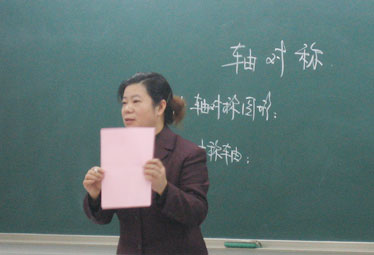 轴对称
轴对称图形:
称轴: